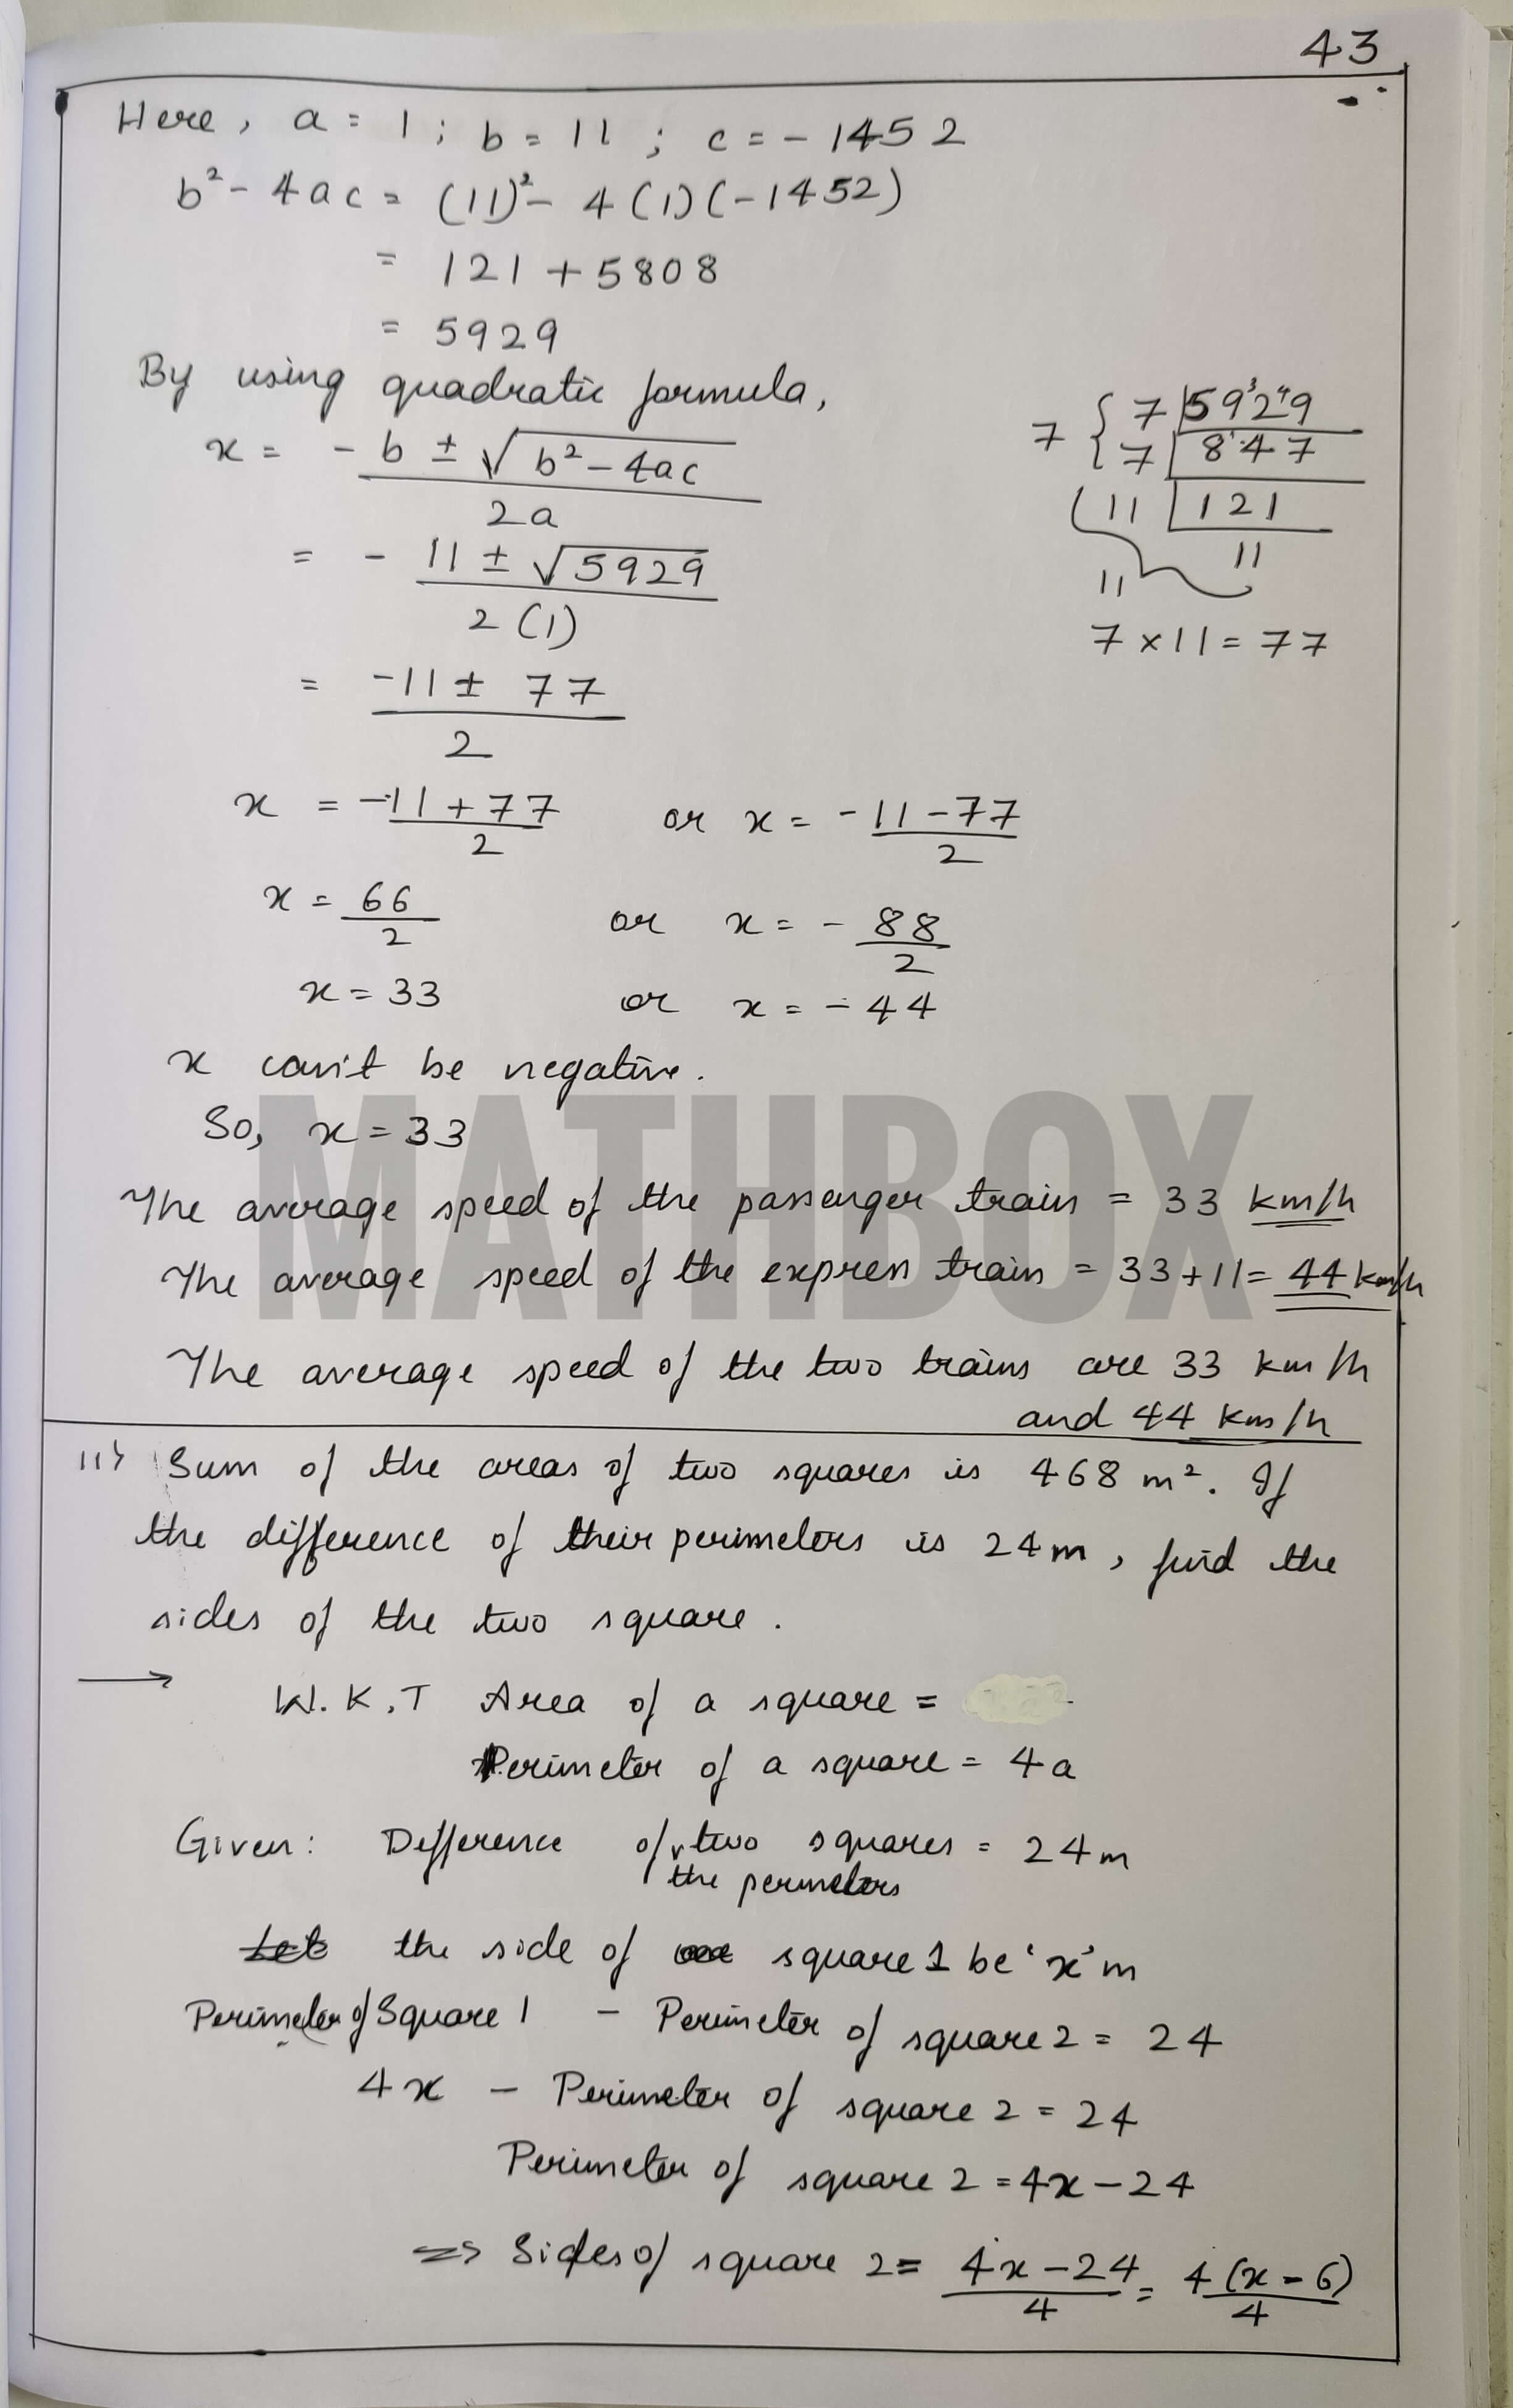 43
Here, a = 1 ; b = 11 ; c = - 1452
b² - 4ac = (11)² - 4(1)(-1452)
= 121 + 5808
= 5929
By using quadratic formula,
x = - b ± √b² - 4ac
2a
= - 11 ± √5929
2(1)
= -11 ± 77
2
7 { 7 | 5929
7 | 847
11 | 121
11
11
7 × 11 = 77
x = -11 + 77 or x = - 11 - 77
2 2
x = 66 or x = - 88
2 2
x = 33 or x = - 44
x can't be negative.
So, x = 33
MATHBOX
The average speed of the passenger train = 33 km/h
The average speed of the express train = 33 + 11 = 44 km/h
The average speed of the two trains are 33 km/h
and 44 km/h
11) Sum of the areas of two squares is 468 m². If
the difference of their perimeters is 24m, find the
sides of the two square.
→ W.K.T Area of a square =
Perimeter of a square = 4a
Given: Difference of two squares = 24m
the perimeters
Let the side of square 1 be 'x' m
Perimeter of Square 1 - Perimeter of square 2 = 24
4x - Perimeter of square 2 = 24
Perimeter of square 2 = 4x - 24
=> Sides of square 2 = 4x - 24 = 4(x - 6)
4 4